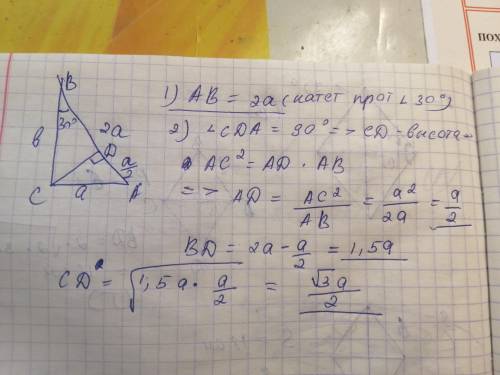 ПОХ
B
30°
2a
в
D
a/2
C a A
1) AB = 2a (катет прот ∠30°)
2) ∠CDA = 90° => CD - высота -
AC² = AD · AB
=> AD = AC²/AB = a²/2a = a/2
BD = 2a - a/2 = 1,5a
CD = √(1,5a · a/2) = √3a/2